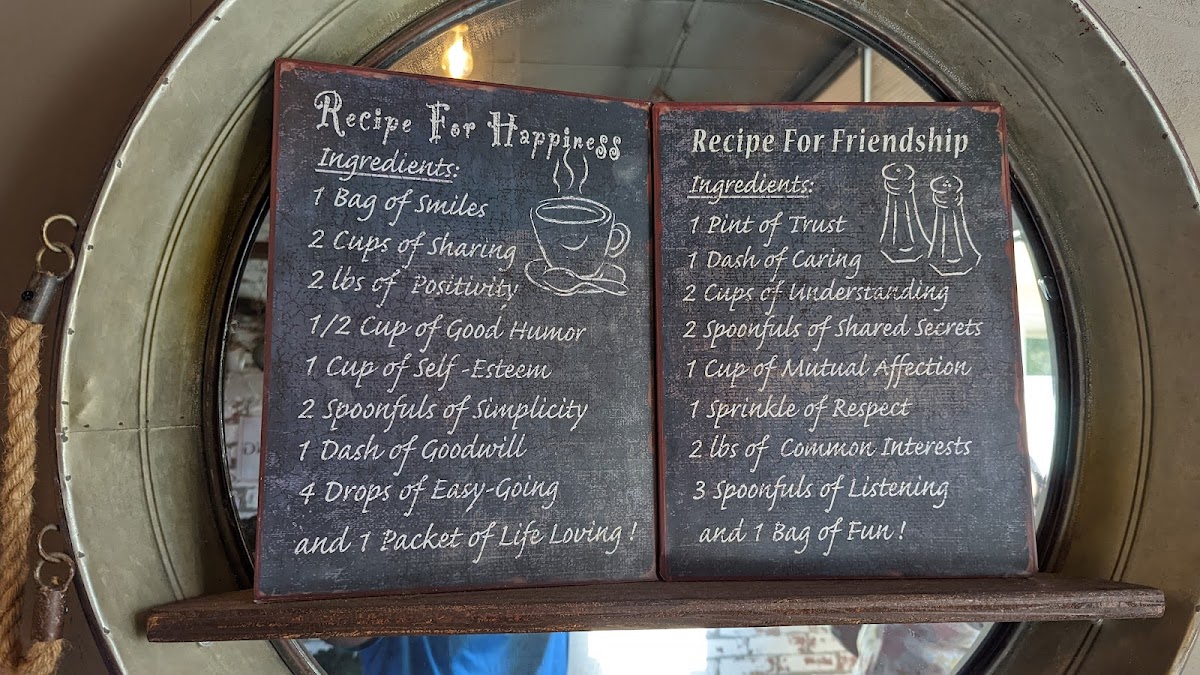 Recipe For Happiness
Ingredients:
1 Bag of Smiles
2 Cups of Sharing
2 lbs of Positivity
1/2 Cup of Good Humor
1 Cup of Self-Esteem
2 Spoonfuls of Simplicity
1 Dash of Goodwill
4 Drops of Easy-Going
and 1 Packet of Life Loving!
Recipe For Friendship
Ingredients:
1 Pint of Trust
1 Dash of Caring
2 Cups of Understanding
2 Spoonfuls of Shared Secrets
1 Cup of Mutual Affection
1 Sprinkle of Respect
2 lbs of Common Interests
3 Spoonfuls of Listening
and 1 Bag of Fun!